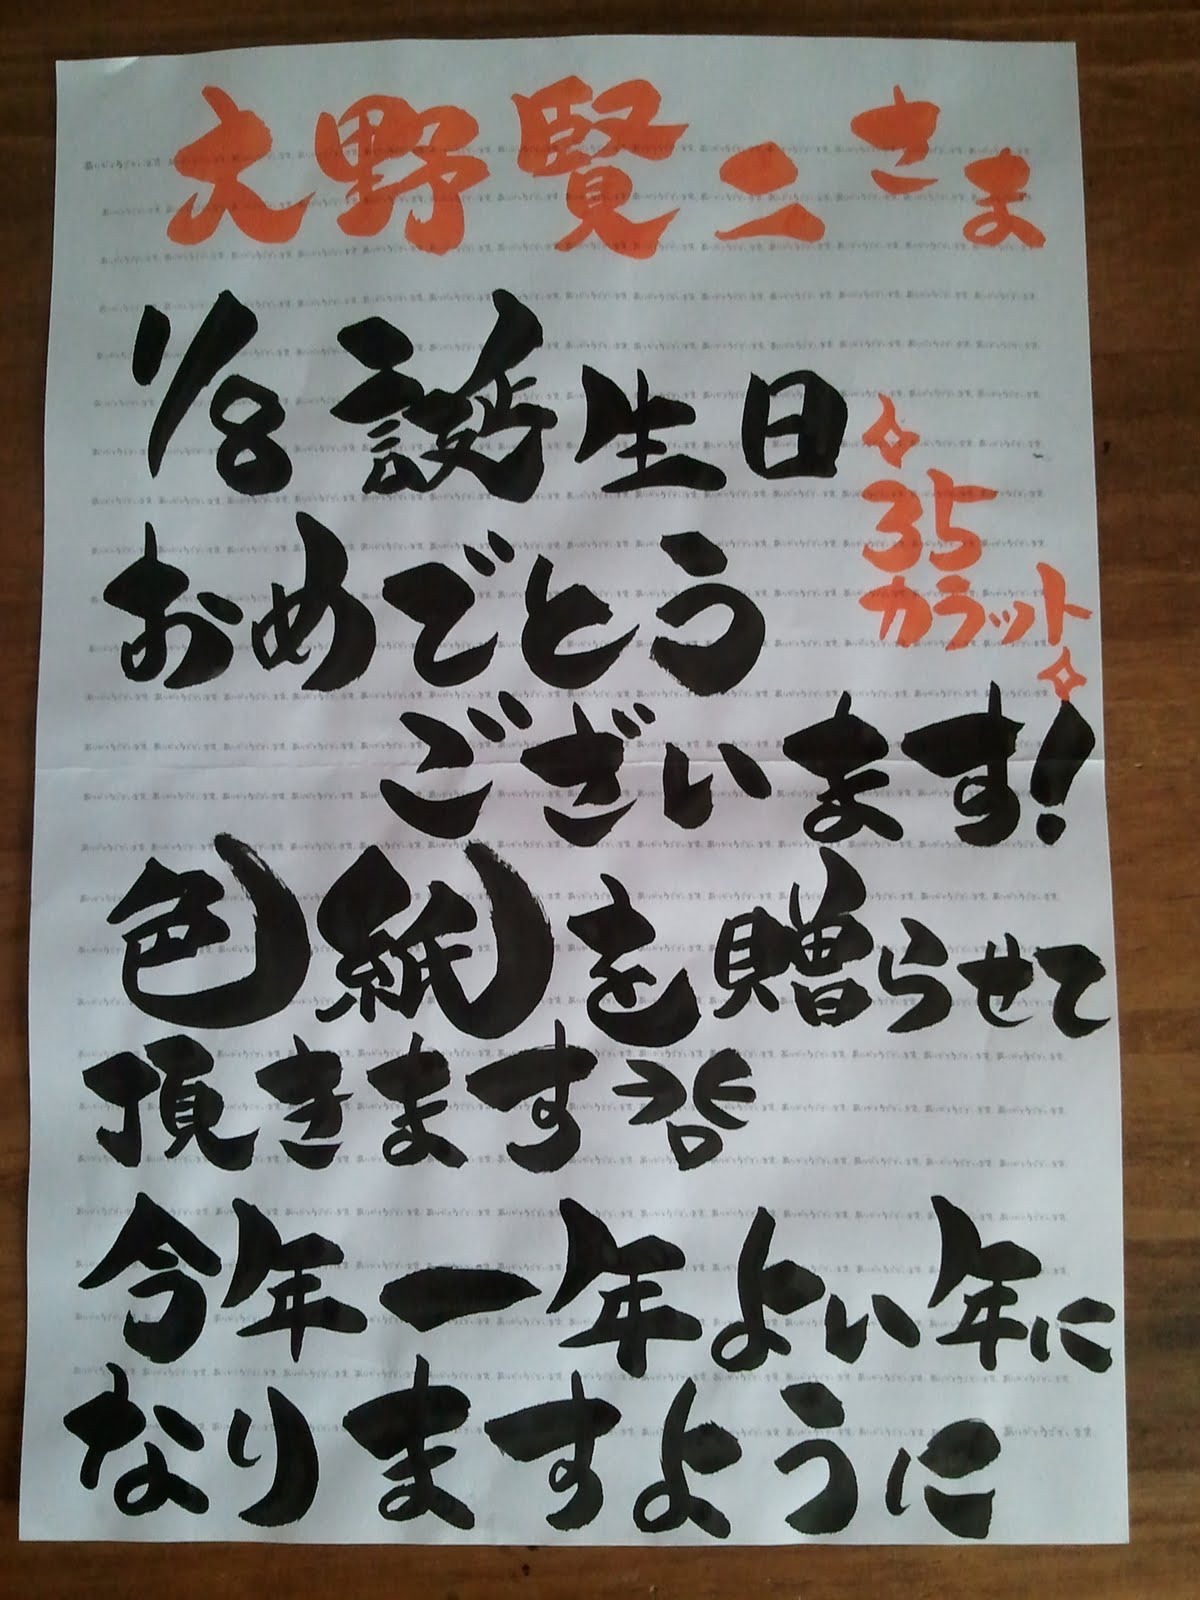 大野賢二さま
1/8 誕生日
35
カラット
おめでとう
ございます!
色紙を贈らせて
頂きます
今年一年よい年に
なりますように